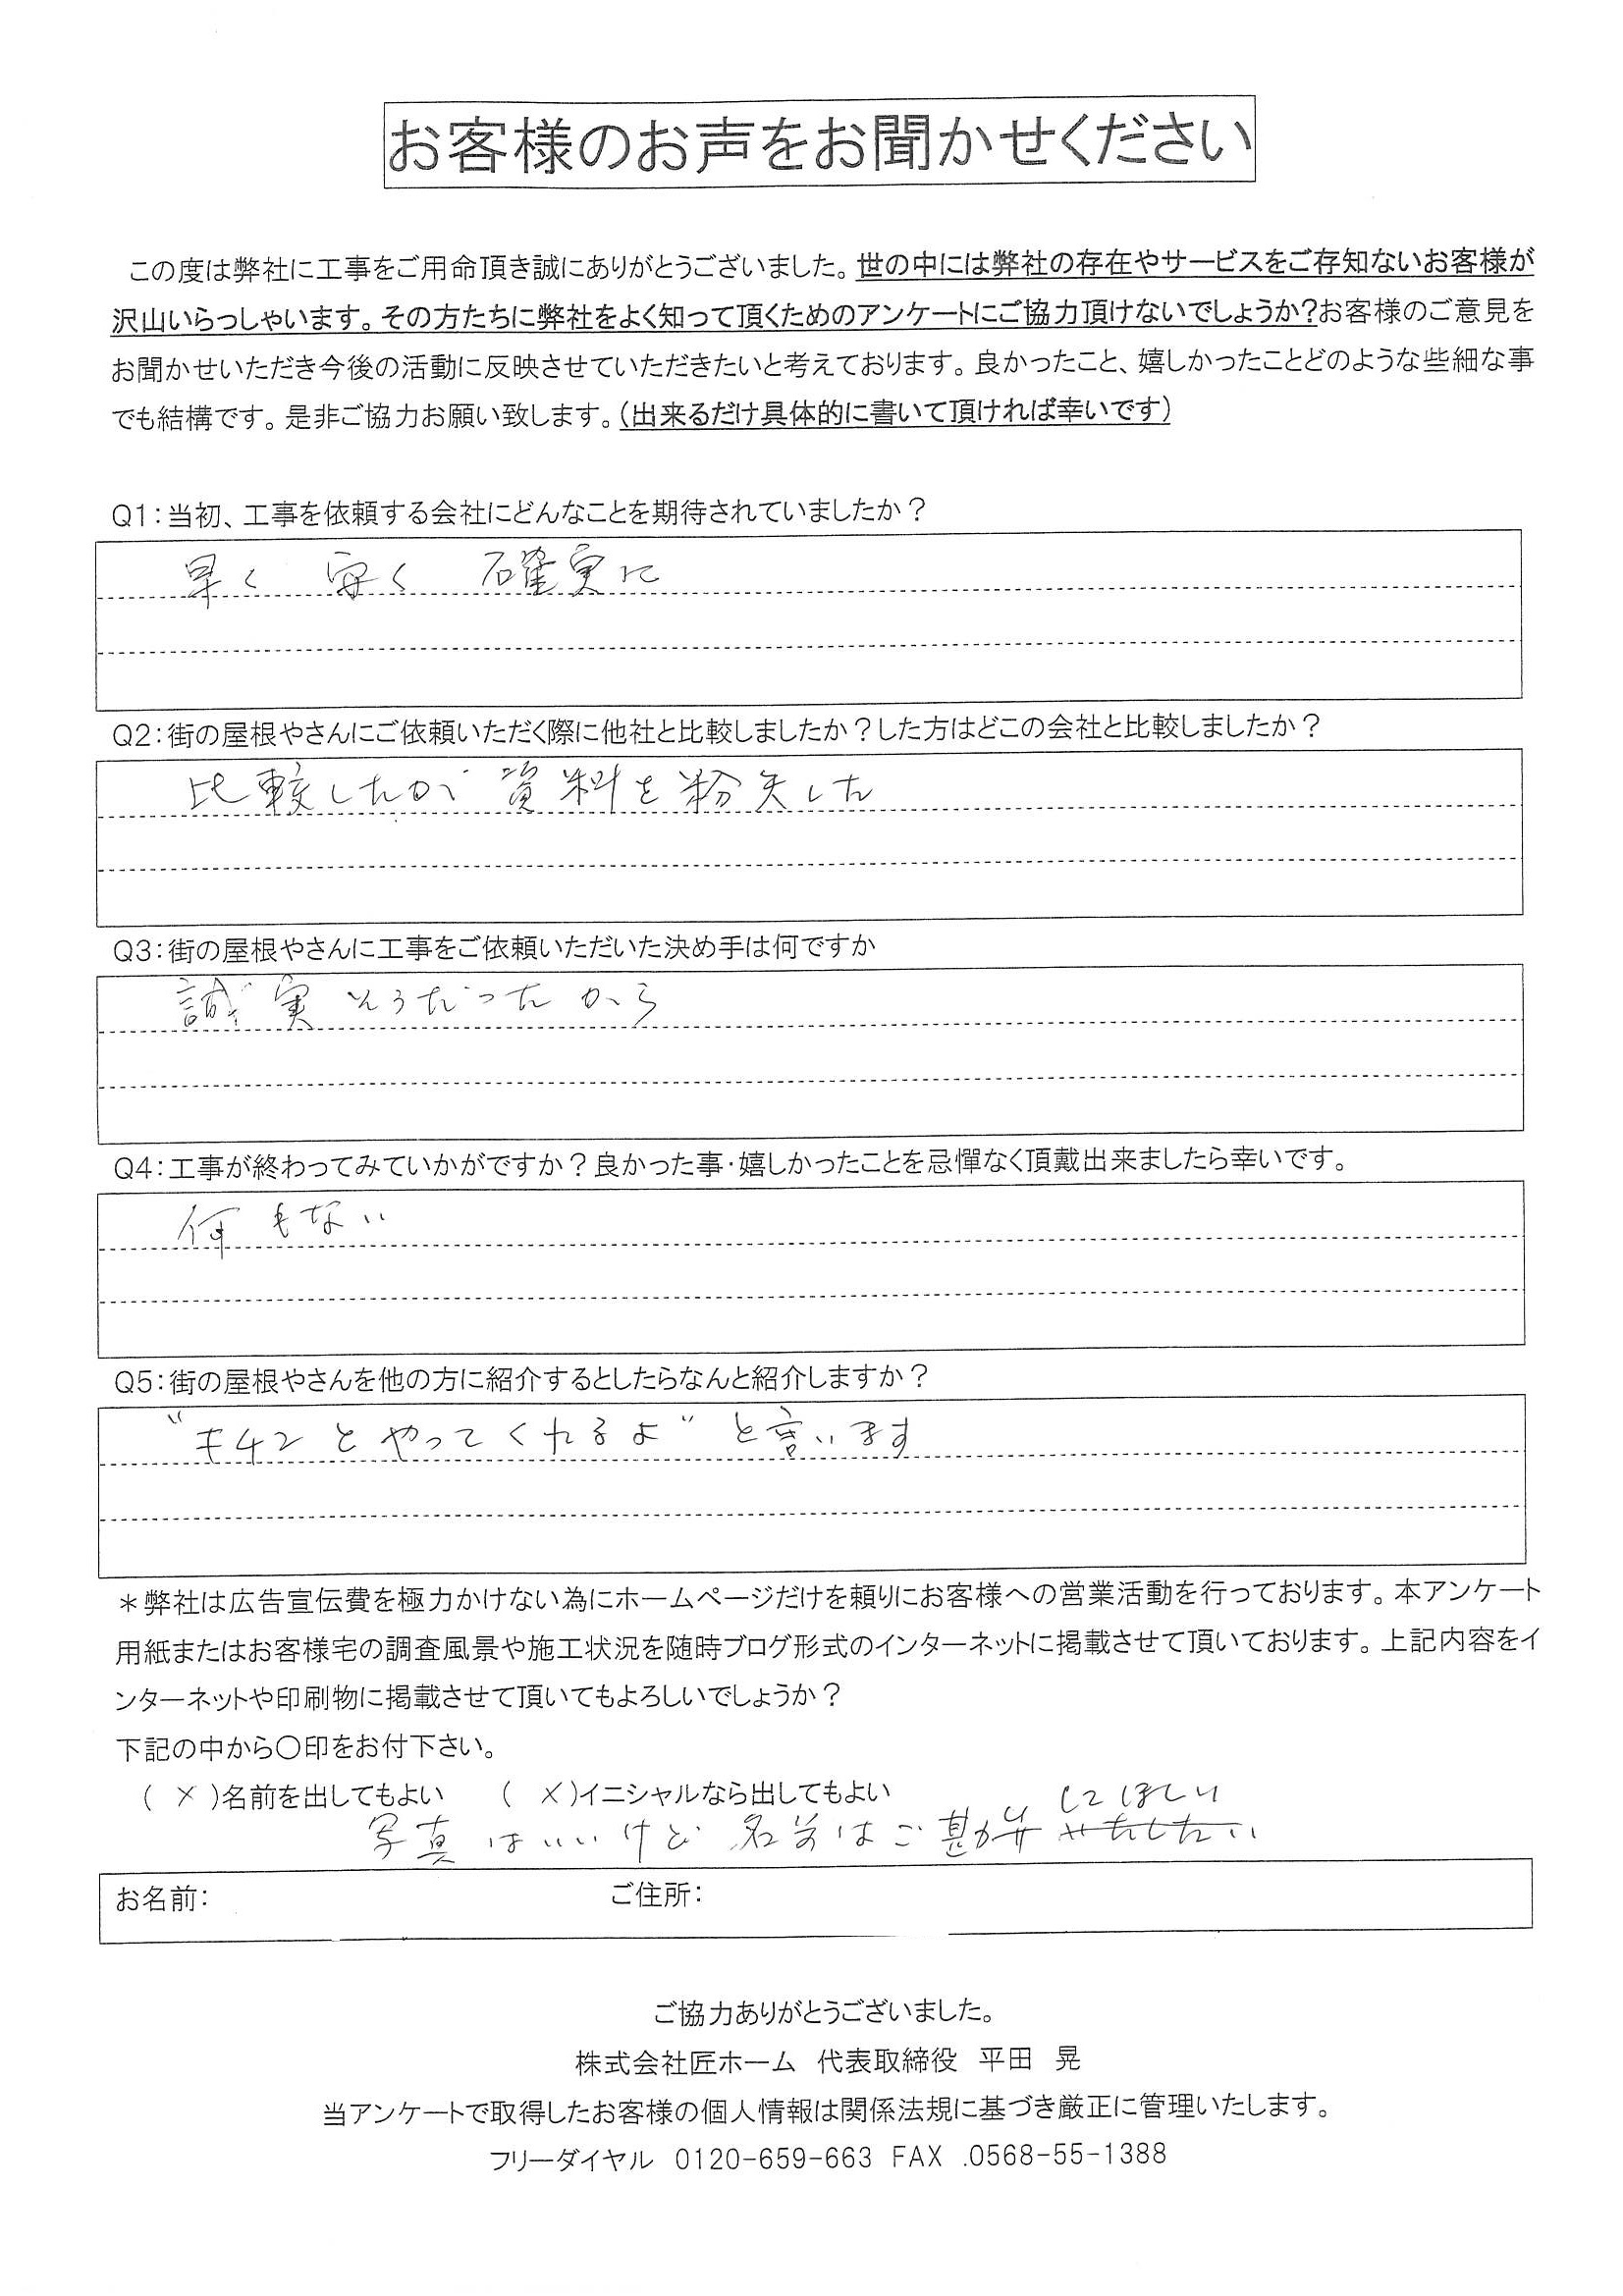 お客様のお声をお聞かせください
この度は弊社に工事をご用命頂き誠にありがとうございました。世の中には弊社の存在やサービスをご存知ないお客様が
沢山いらっしゃいます。その方たちに弊社をよく知って頂くためのアンケートにご協力頂けないでしょうか?お客様のご意見を
お聞かせいただき今後の活動に反映させていただきたいと考えております。良かったこと、嬉しかったことどのような些細な事
でも結構です。是非ご協力お願い致します。(出来るだけ具体的に書いて頂ければ幸いです)
Q1:当初、工事を依頼する会社にどんなことを期待されていましたか?
早く 安く 確実に
Q2:街の屋根やさんにご依頼いただく際に他社と比較しましたか?した方はどこの会社と比較しましたか?
比較したが 資料を紛失した
Q3:街の屋根やさんに工事をご依頼いただいた決め手は何ですか
誠実そうだったから
Q4:工事が終わってみていかがですか?良かった事・嬉しかったことを忌憚なく頂戴出来ましたら幸いです。
何もない
Q5:街の屋根やさんを他の方に紹介するとしたらなんと紹介しますか?
"キチンとやってくれるよ"と言います
*弊社は広告宣伝費を極力かけない為にホームページだけを頼りにお客様への営業活動を行っております。本アンケート
用紙またはお客様宅の調査風景や施工状況を随時ブログ形式のインターネットに掲載させて頂いております。上記内容をイ
ンターネットや印刷物に掲載させて頂いてもよろしいでしょうか?
下記の中から〇印をお付下さい。
( × )名前を出してもよい ( × )イニシャルなら出してもよい
写真はいいけど 名前はご勘弁してほしい
お名前: ご住所:
ご協力ありがとうございました。
株式会社匠ホーム 代表取締役 平田 晃
当アンケートで取得したお客様の個人情報は関係法規に基づき厳正に管理いたします。
フリーダイヤル 0120-659-663 FAX .0568-55-1388